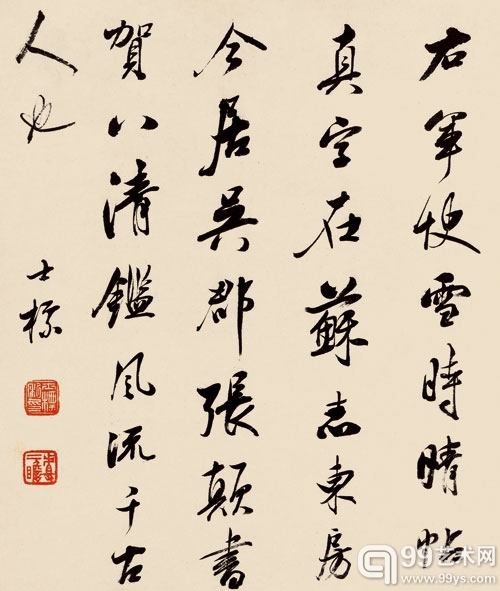 右軍快雪時晴帖
真字在蘇志東房
今居吳郡張顛書
賀八清鑑風流千古
人也
士標
99艺术网
www.99ys.com